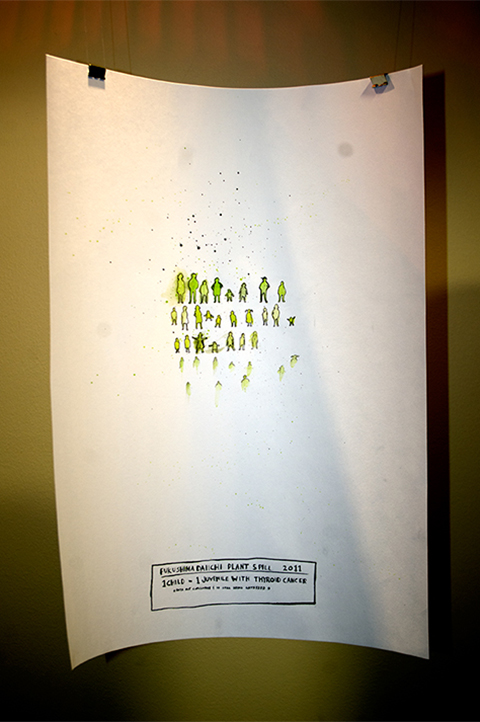 FUKUSHIMA DAIICHI PLANT SPILL 2011
1 CHILD - 1 JUVENILE WITH THYROID CANCER